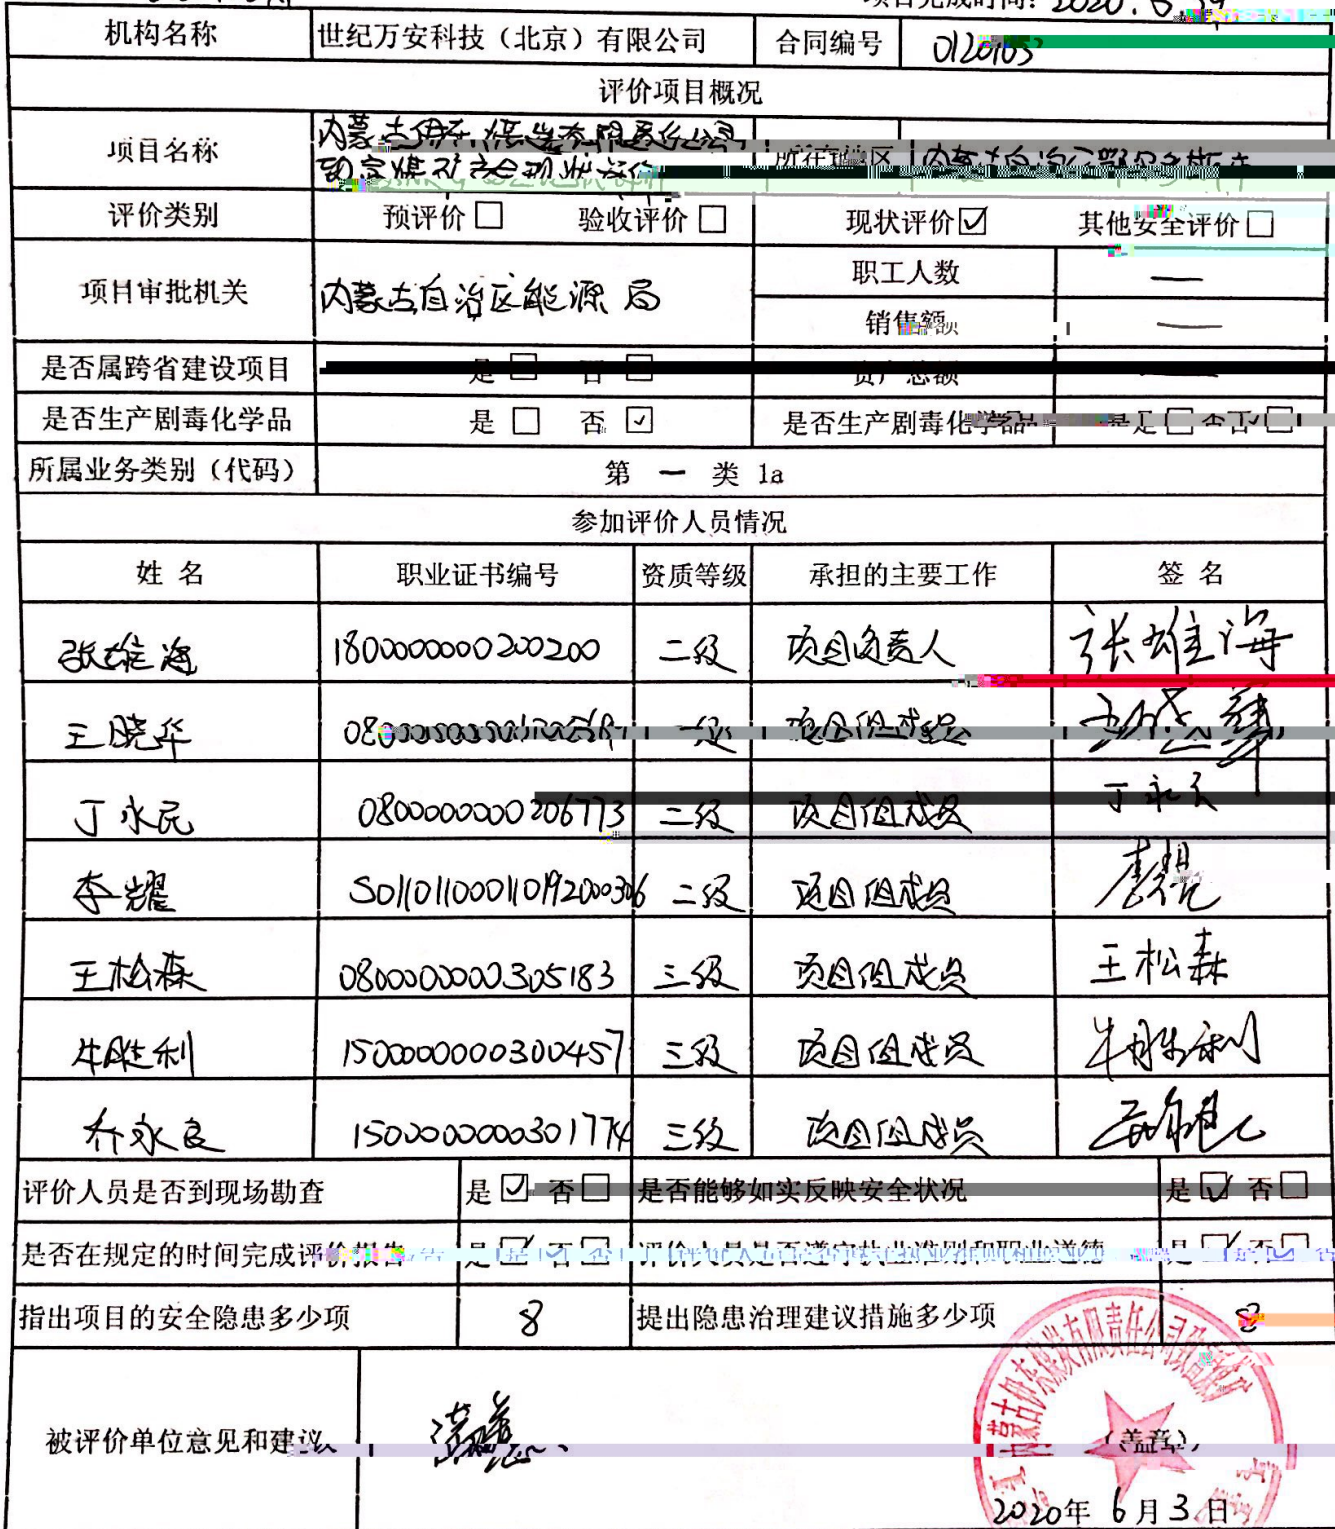 项目完成时间：2020.
机构名称 世纪万安科技（北京）有限公司 合同编号 0120103
评价项目概况
项目名称 内蒙古伊东煤炭有限责任公司 所在地区
安全现状评价
评价类别 预评价□ 验收评价□ 现状评价☑ 其他安全评价□
项目审批机关 内蒙古自治区能源局 职工人数 —
销售额 —
是否属跨省建设项目 是□ 否□ 资产总额 —
是否生产剧毒化学品 是□ 否☑ 是否生产剧毒化学品 是□ 否☑
所属业务类别（代码） 第一类 1a
参加评价人员情况
姓名 职业证书编号 资质等级 承担的主要工作 签名
张雄海 1800000000200200 二级 项目负责人 张雄海
王晓华 项目组成员 王晓华
丁永民 0800000000206773 二级 项目组成员 丁永民
李耀 S011011000110192000306 二级 项目组成员 李耀
王松森 0800000000305183 三级 项目组成员 王松森
牛胜利 1500000000300457 三级 项目组成员 牛胜利
乔永良 1500000000301774 三级 项目组成员
评价人员是否到现场勘查 是☑ 否□ 是否能够如实反映安全状况 是☑ 否□
是否在规定的时间完成评价报告 是☑ 否□ 评价人员是否遵守执业准则和职业道德 是☑ 否□
指出项目的安全隐患多少项 8 提出隐患治理建议措施多少项 8
被评价单位意见和建议 满意 （盖章）
2020年6月3日